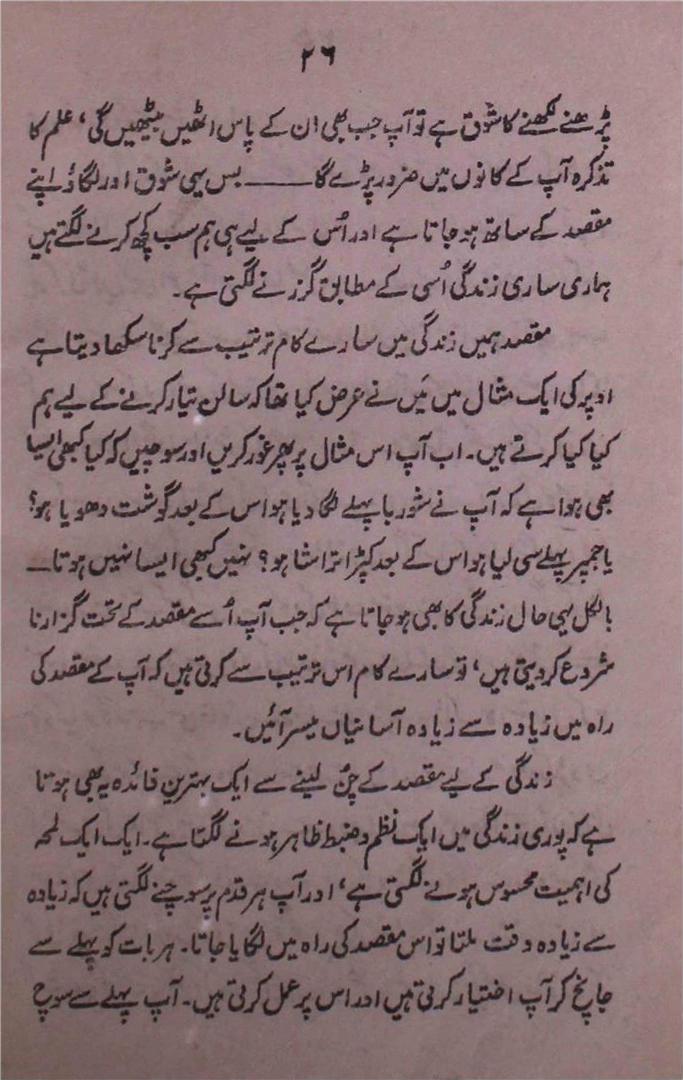 ۲۶
پڑھنے لکھنے کا شوق ہے تو آپ جب بھی ان کے پاس اٹھیں بیٹھیں گی، علم کا
تذکرہ آپ کے کانوں میں ضرور پڑے گا ــــــ بس یہی شوق اور لگاؤ اپنے
مقصد کے ساتھ ہو جاتا ہے اور اُس کے لیے ہی ہم سب کچھ کرنے لگتے ہیں
ہماری ساری زندگی اُسی کے مطابق گزرنے لگتی ہے۔
مقصد ہمیں زندگی میں سارے کام ترتیب سے کرنا سکھا دیتا ہے
اوپر کی ایک مثال میں مَیں نے عرض کیا تھا کہ سالن تیار کرنے کے لیے ہم
کیا کیا کرتے ہیں۔ اب آپ اس مثال پر پھر غور کریں اور سوچیں کہ کیا کبھی ایسا
بھی ہوا ہے کہ آپ نے شوربا پہلے لگا دیا ہو اس کے بعد گوشت دھویا ہو؟
یا جمپر پہلے سی لیا ہو اس کے بعد کپڑا تراشا ہو؟ نہیں کبھی ایسا نہیں ہوتا ــ
بالکل یہی حال زندگی کا بھی ہو جاتا ہے کہ جب آپ اُسے مقصد کے تحت گزارنا
شروع کر دیتی ہیں، تو سارے کام اس ترتیب سے کرتی ہیں کہ آپ کے مقصد کی
راہ میں زیادہ سے زیادہ آسانیاں میسر آئیں۔
زندگی کے لیے مقصد کے چن لینے سے ایک بہترین فائدہ یہ بھی ہوتا
ہے کہ پوری زندگی میں ایک نظم و ضبط ظاہر ہونے لگتا ہے۔ ایک ایک لمحہ
کی اہمیت محسوس ہونے لگتی ہے، اور آپ ہر قدم پر سوچنے لگتی ہیں کہ زیادہ
سے زیادہ وقت ملتا تو اس مقصد کی راہ میں لگایا جاتا۔ ہر بات کو پہلے سے
جانچ کر آپ اختیار کرتی ہیں اور اس پر عمل کرتی ہیں۔ آپ پہلے سے سوچ